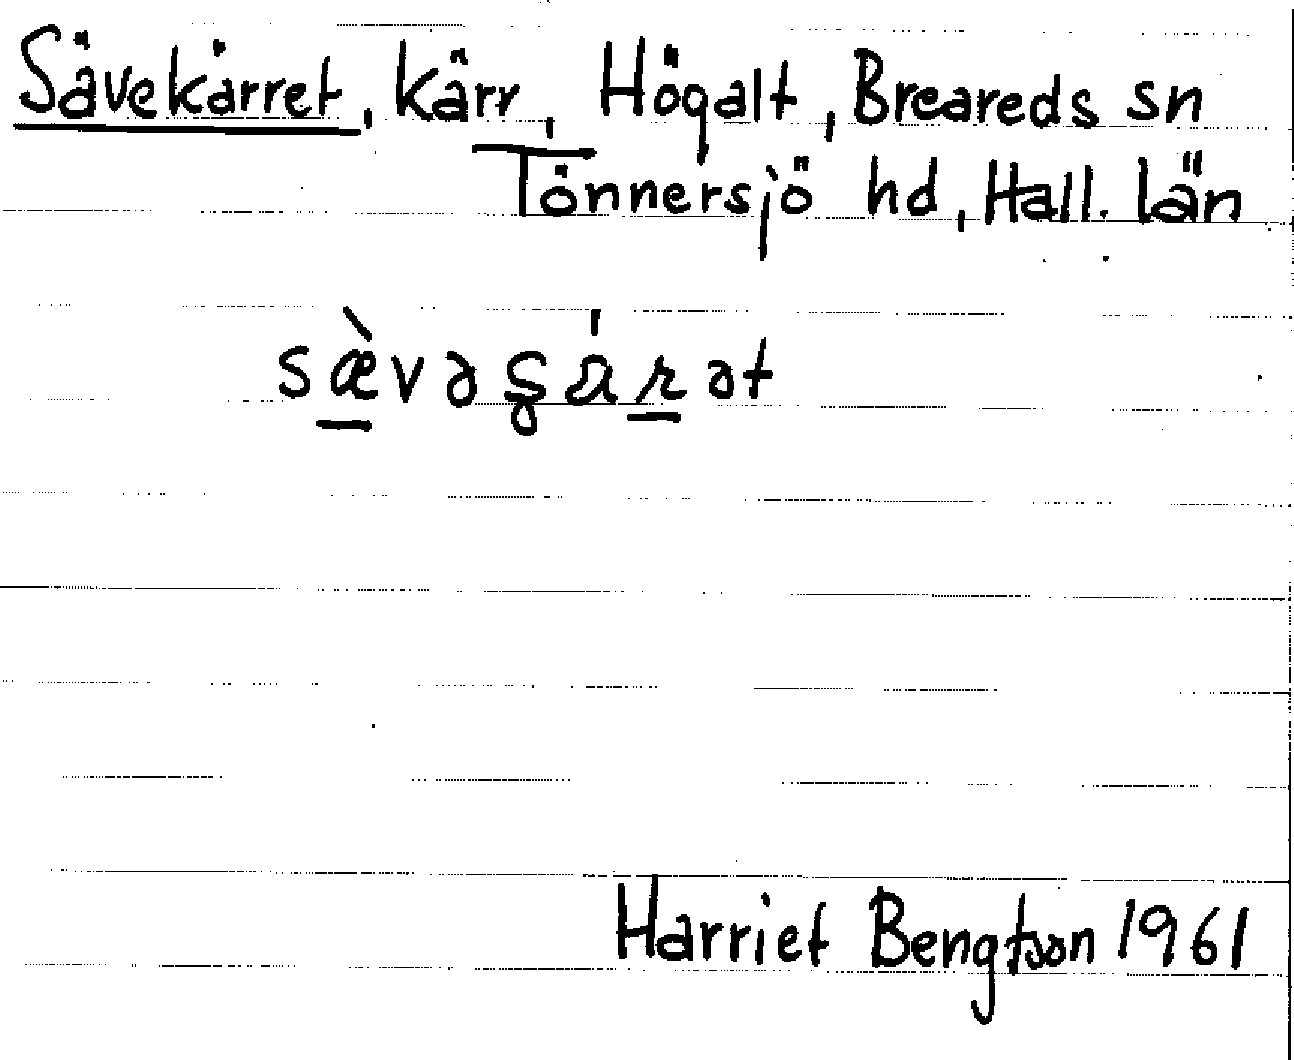 Sävekärret, kärr, Högalt, Breareds sn
Tönnersjö hd, Hall. län
sæ̀vəʂárət
Harriet Bengtson 1961